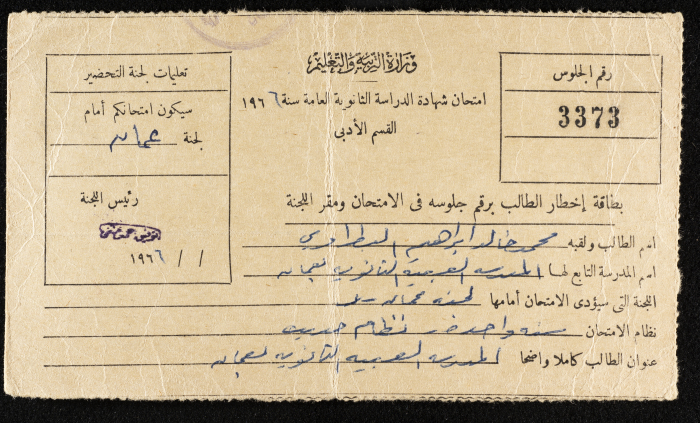 وزارة التربية والتعليم
امتحان شهادة الدراسة الثانوية العامة سنة ١٩٦٦
القسم الأدبى
رقم الجلوس
3373
تعليمات لجنة التحضير
سيكون امتحانكم أمام
لجنة عمان
رئيس اللجنة
/ / ١٩٦٦
بطاقة إخطار الطالب برقم جلوسه فى الامتحان ومقر اللجنة
اسم الطالب ولقبه محمد خالد ابراهيم
اسم المدرسة التابع لها المدرسة العربية الثانوية بعمان
اللجنة التى سيؤدى الامتحان أمامها لجنة عمان
نظام الامتحان سنة واحدة نظام حديث
عنوان الطالب كاملا واضحا المدرسة العربية الثانوية بعمان